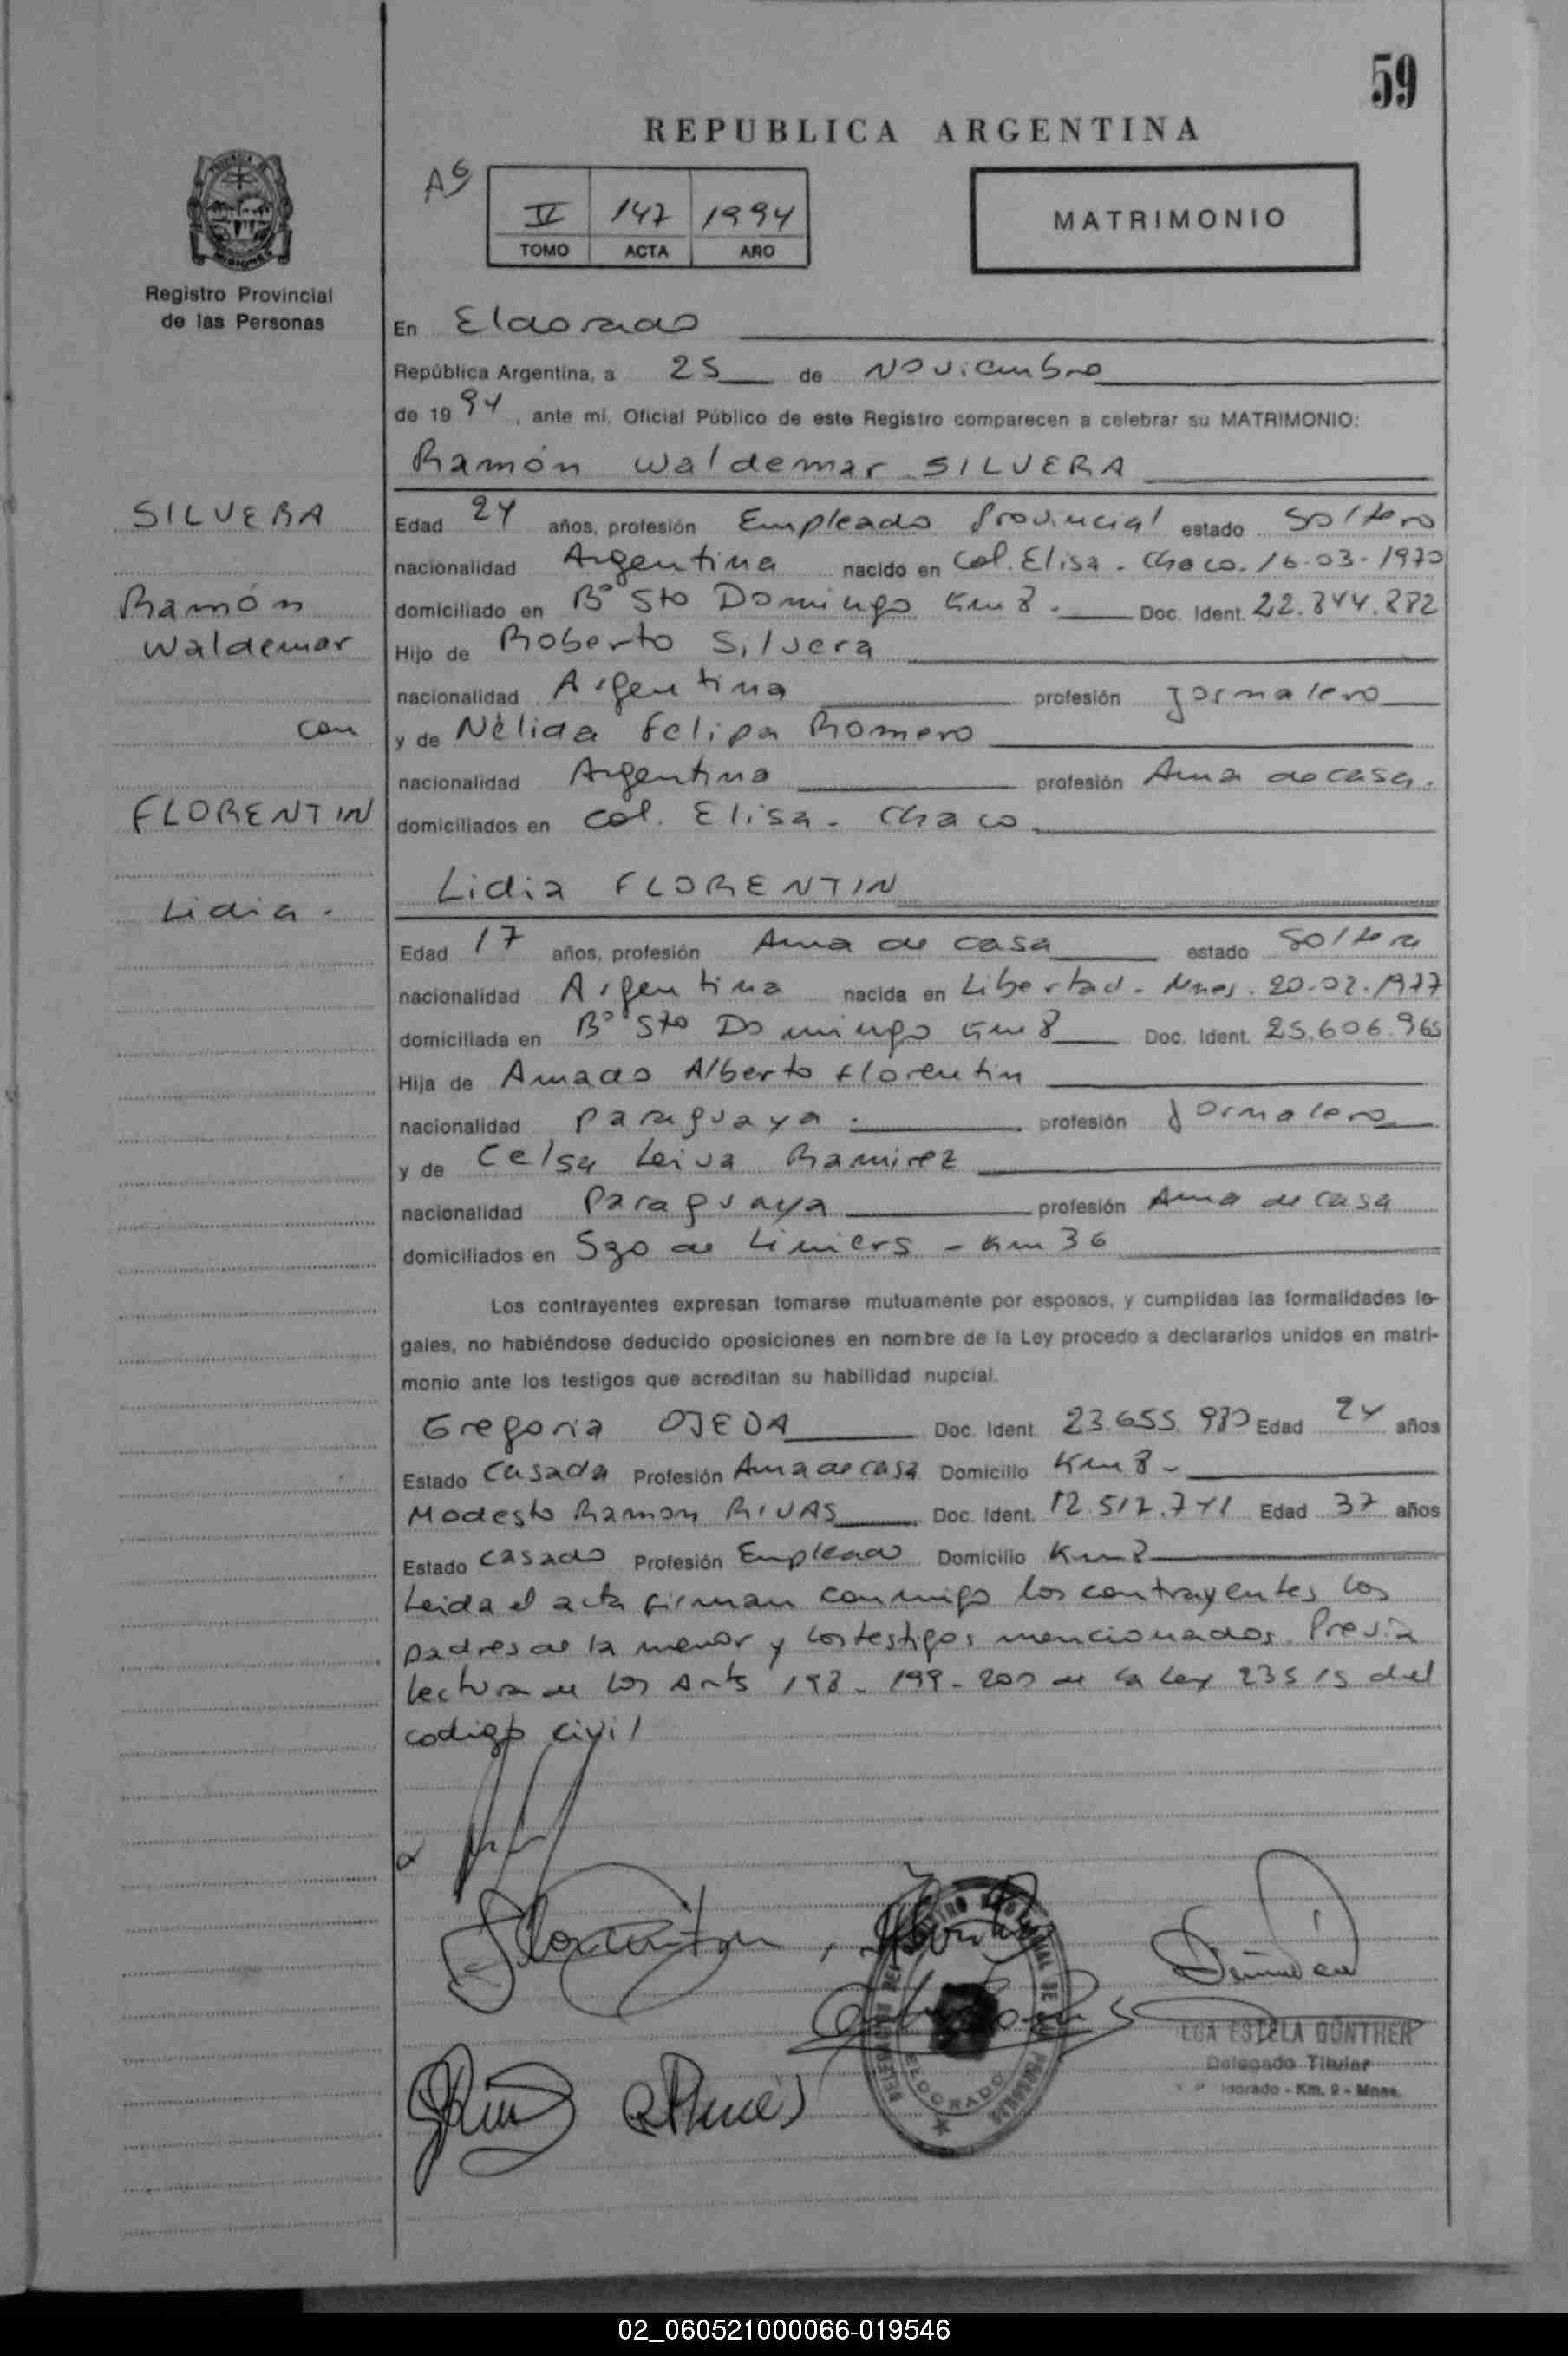 59
REPUBLICA ARGENTINA
A5
IV 147 1994
TOMO ACTA AÑO
MATRIMONIO
Registro Provincial
de las Personas
En Eldorado
República Argentina, a 25 de Noviembre
de 1994, ante mí, Oficial Público de este Registro comparecen a celebrar su MATRIMONIO:
Ramón Waldemar SILVERA
SILVERA
Ramón
Waldemar
con
FLORENTIN
Lidia.
Edad 24 años, profesión Empleado Provincial estado soltero
nacionalidad Argentina nacido en Col. Elisa - Chaco. 16-03-1970
domiciliado en Bº Sto Domingo Km 8.- Doc. Ident. 22.844.882
Hijo de Roberto Silvera
nacionalidad Argentina profesión Jornalero
y de Nélida Felipa Romero
nacionalidad Argentina profesión Ama de casa.
domiciliados en Col. Elisa - Chaco
Lidia FLORENTIN
Edad 17 años, profesión Ama de casa estado soltera
nacionalidad Argentina nacida en Libertad - Mnes. 20-02-1977
domiciliada en Bº Sto Domingo Km 8 Doc. Ident. 25.606.965
Hija de Amado Alberto Florentin
nacionalidad Paraguaya. profesión Jornalero
y de Celsa Leiva Ramirez
nacionalidad Paraguaya profesión Ama de casa
domiciliados en Sgo de Liniers - Km 36
Los contrayentes expresan tomarse mutuamente por esposos, y cumplidas las formalidades le-
gales, no habiéndose deducido oposiciones en nombre de la Ley procedo a declararlos unidos en matri-
monio ante los testigos que acreditan su habilidad nupcial.
Gregoria OJEDA Doc. Ident. 23.655.980 Edad 24 años
Estado Casada Profesión Ama de casa Domicilio Km 8-
Modesto Ramon RIVAS Doc. Ident. 12.512.741 Edad 37 años
Estado Casado Profesión Empleado Domicilio Km 8
Leida el acta firman conmigo los contrayentes los
padres de la menor y los testigos mencionados. Previa
lectura de los Arts 198 - 199 - 200 de la Ley 23515 del
codigo civil
ELDORADO
ESTELA GÜNTHER
Delegado Titular
Km. 9 - Mnes.
02_060521000066-019546